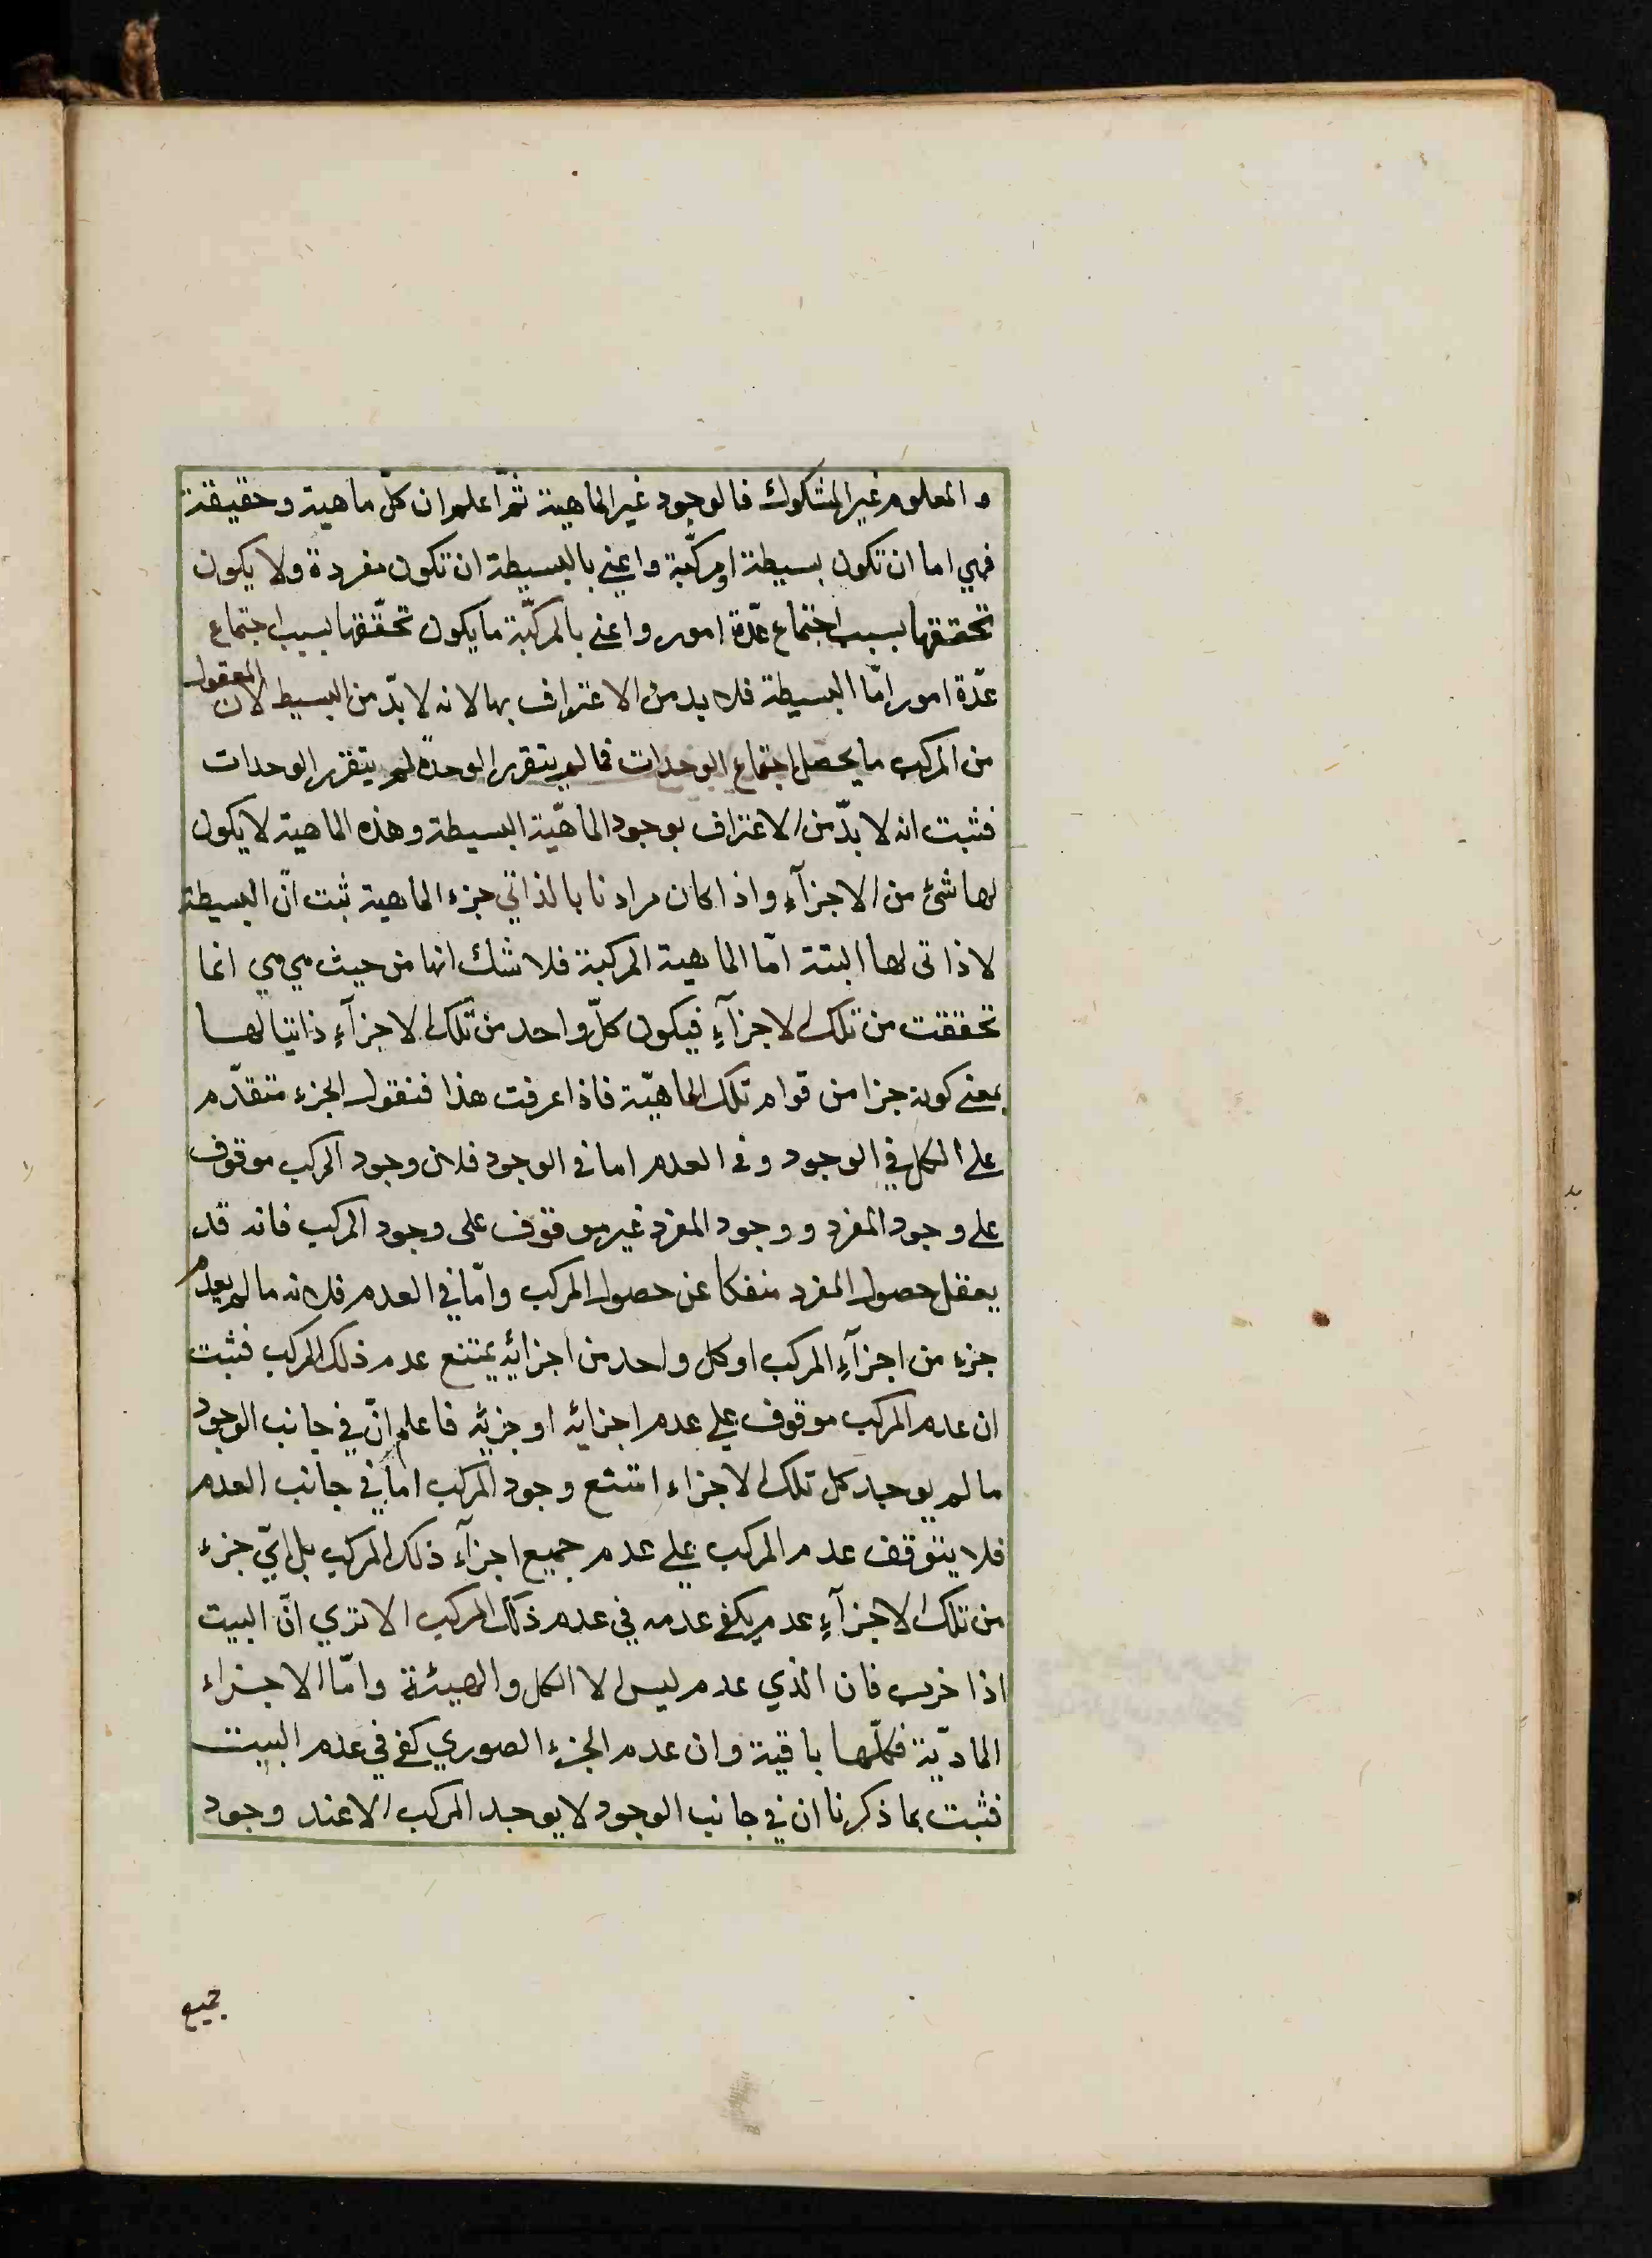 والمعلوم غير المشكوك فالوجود غير الماهية ثمّ اعلم ان كلّ ماهية وحقيقة
فهي اما ان تكون بسيطة او مركّبة واعني بالبسيطة ان تكون مفردة ولا يكون
تحققها بسبب اجتماع عدّة امور واعني بالمركّبة ما يكون تحقّقها بسبب اجتماع
عدّة امور امّا البسيطة فلا بد من الاعتراف بها لانه لا بدّ من البسيط لان المعقول
من المركب ما يحصل اجتماع الوحدات فما لم يتقرر الوحدة لم يتقرر الوحدات
فثبت انه لا بدّ من الاعتراف بوجود الماهيّة البسيطة وهذه الماهية لا يكون
لها شئ من الاجزآء واذا كان مرادنا بالذاتي جزء الماهية ثبت انّ البسيطة
لا ذاتى لها البتة امّا الماهية المركبة فلا شك انها من حيث هي هي انما
تحققت من تلك الاجزآء فيكون كلّ واحد من تلك الاجزآء ذاتيا لها
بمعنى كونه جزا من قوام تلك الماهيّة فاذا عرفت هذا فنقول الجزء متقدّم
على الكل في الوجود وفى العدم اما فى الوجود فلان وجود المركب موقوف
على وجود المفرد ووجود المفرد غير موقوف على وجود المركب فانه قد
يعقل حصول المفرد منفكا عن حصول المركب وامّا في العدم فلانه ما لم يعدم
جزء من اجزآء المركب او كل واحد من اجزائه يمتنع عدم ذلك المركب فثبت
ان عدم المركب موقوف على عدم اجزائه او جزئه فاعلم انّ في جانب الوجود
ما لم يوجد كل تلك الاجزاء امتنع وجود المركب اما في جانب العدم
فلا يتوقف عدم المركب على عدم جميع اجزآء ذلك المركب بل ايّ جزء
من تلك الاجزآء عدم يكفي عدمه في عدم ذلك المركب الا تري انّ البيت
اذا خرب فان الذي عدم ليس الا الكل والهيئة وامّا الاجزاء
المادّية فكلّها باقية وان عدم الجزء الصوري كفى في عدم البيت
فثبت بما ذكرنا ان في جانب الوجود لا يوجد المركب الا عند وجود
جميع